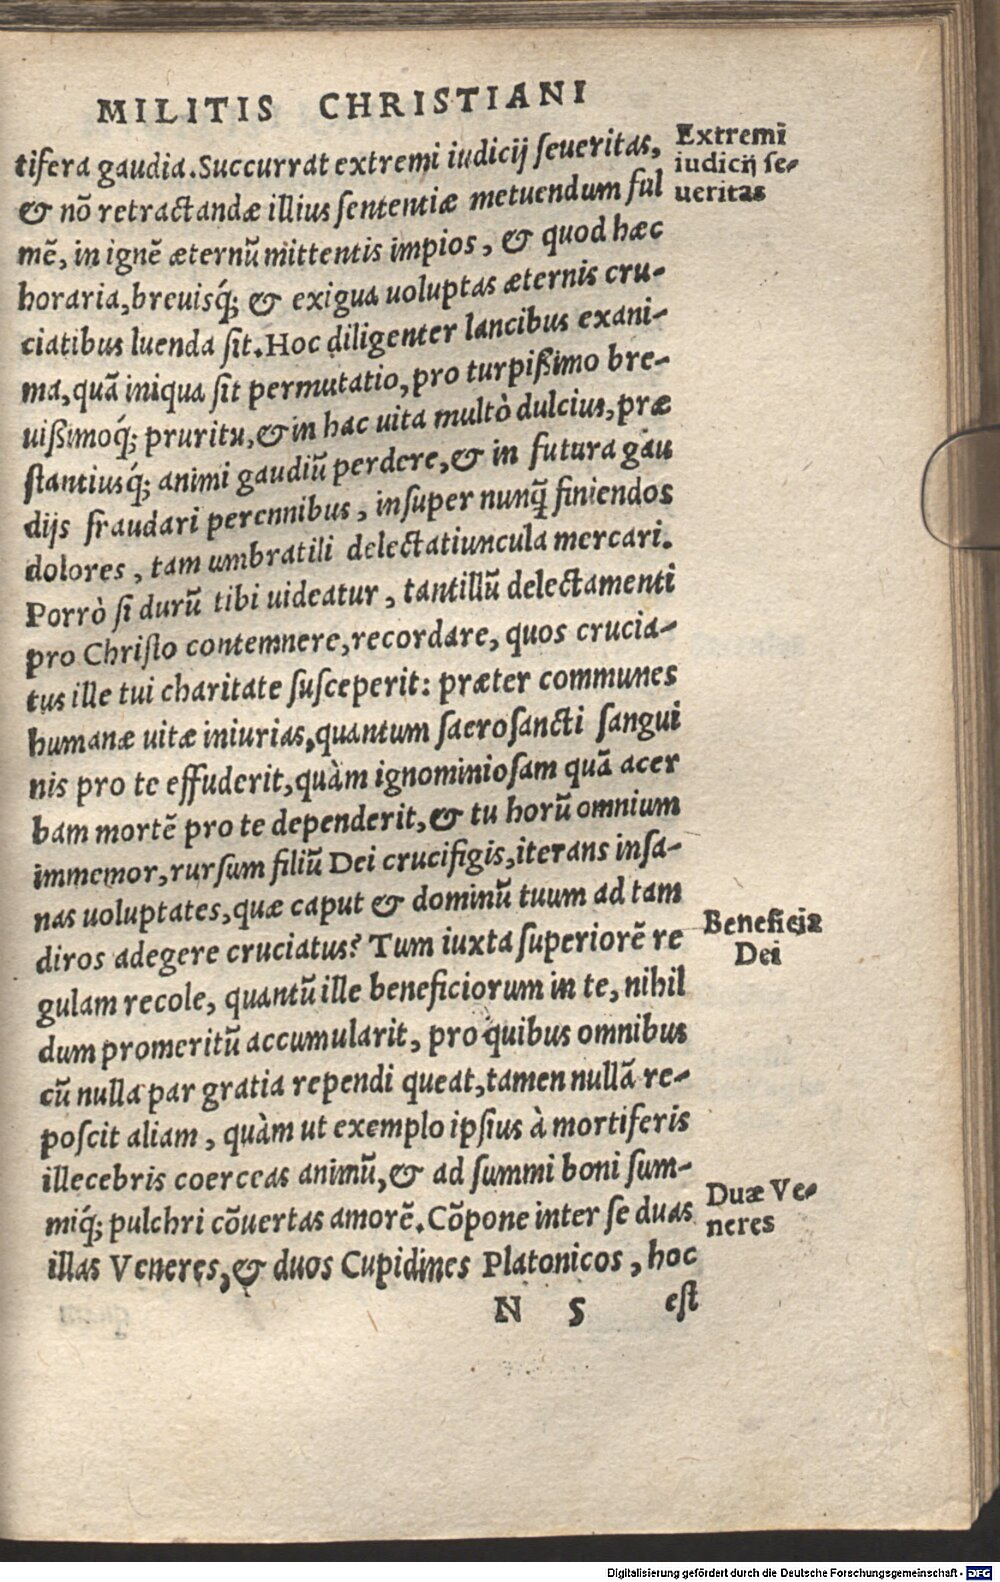 MILITIS CHRISTIANI
tifera gaudia. Succurrat extremi iudicij ſeueritas,
& nõ retractandæ illius ſententiæ metuendum ful
mẽ, in ignẽ æternũ mittentis impios, & quod hæc
horaria, breuisq́; & exigua uoluptas æternis cru-
ciatibus luenda ſit. Hoc diligenter lancibus exani-
ma, quã iniqua ſit permutatio, pro turpißimo bre-
uißimoq́; pruritu, & in hac uita multò dulcius, præ
ſtantiusq́; animi gaudiũ perdere, & in futura gau
dijs fraudari perennibus, inſuper nunq̃ finiendos
dolores, tam umbratili delectatiuncula mercari.
Porrò ſi durũ tibi uideatur, tantillũ delectamenti
pro Chriſto contemnere, recordare, quos crucia-
tus ille tui charitate ſuſceperit: præter communes
humanæ uitæ iniurias, quantum ſaeroſancti ſangui
nis pro te effuderit, quàm ignominioſam quã acer
bam mortẽ pro te dependerit, & tu horũ omnium
immemor, rurſum filiũ Dei crucifigis, iterans inſa-
nas uoluptates, quæ caput & dominũ tuum ad tam
diros adegere cruciatus? Tum iuxta ſuperiorẽ re
gulam recole, quantũ ille beneficiorum in te, nihil
dum promeritũ accumularit, pro quibus omnibus
cũ nulla par gratia rependi queat, tamen nullã re-
poſcit aliam, quàm ut exemplo ipſius à mortiferis
illecebris coerceas animũ, & ad ſummi boni ſum-
miq́; pulchri cõuertas amorẽ. Cõpone inter ſe duas
illas Veneres, & duos Cupidines Platonicos, hoc
N 5 eſt
Extremi
iudicij ſe-
ueritas
Beneficia
Dei
Duæ Ve-
neres
Digitalisierung gefördert durch die Deutsche Forschungsgemeinschaft - DFG